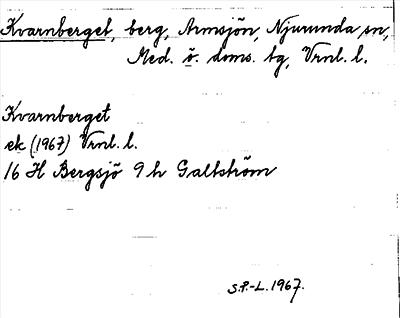 Kvarnberget, berg, Armsjön, Njurunda sn,
Med. ö. doms. tg, Vrnl. l.
Kvarnberget
ek (1967) Vrnl. l.
16 H Bergsjö 9 h Galtström
S.P.-L. 1967.